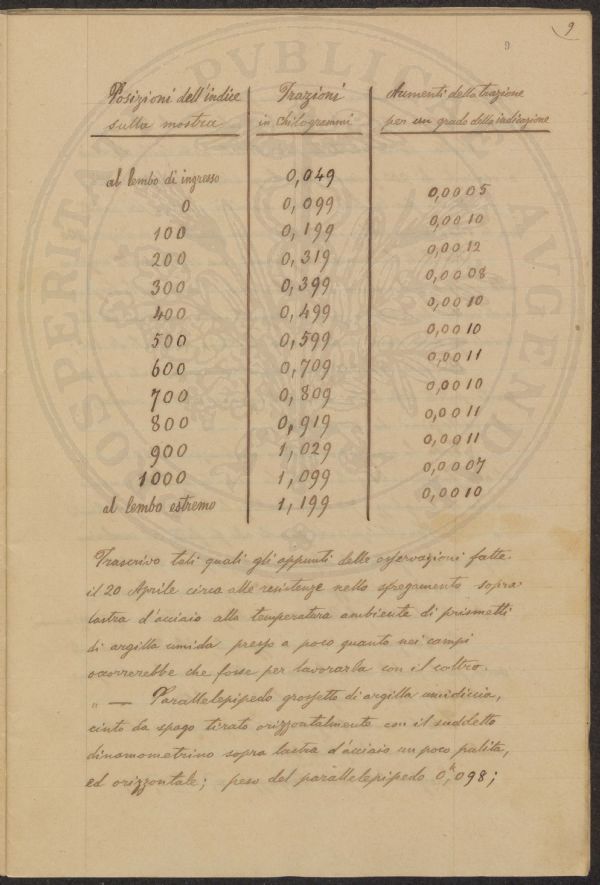 9
9
Posizioni dell'indice Trazioni Aumenti della trazione
sulla mostra in chilogrammi per un grado della indicazione
al lembo di ingresso 0,049
0,0005
0 0,099
0,0010
100 0,199
0,0012
200 0,319
0,0008
300 0,399
0,0010
400 0,499
0,0010
500 0,599
0,0011
600 0,709
0,0010
700 0,809
0,0011
800 0,919
0,0011
900 1,029
0,0007
1000 1,099
0,0010
al lembo estremo 1,199
Trascrivo tali quali gli appunti delle osservazioni fatte
il 20 Aprile circa alle resistenze nello sfregamento sopra
lastra d'acciaio alla temperatura ambiente di prismetti
di argilla umida presso a poco quanto nei campi
occorrerebbe che fosse per lavorarla con il coltro.
„ — Parallelepipedo grossetto di argilla umidiccia,
cinto da spago tirato orizzontalmente con il suddetto
dinamometrino sopra lastra d'acciaio un poco pulita,
ed orizzontale; peso del parallelepipedo 0,ᵏ098;
PUBLICAE AUGENDAE PROSPERITATI